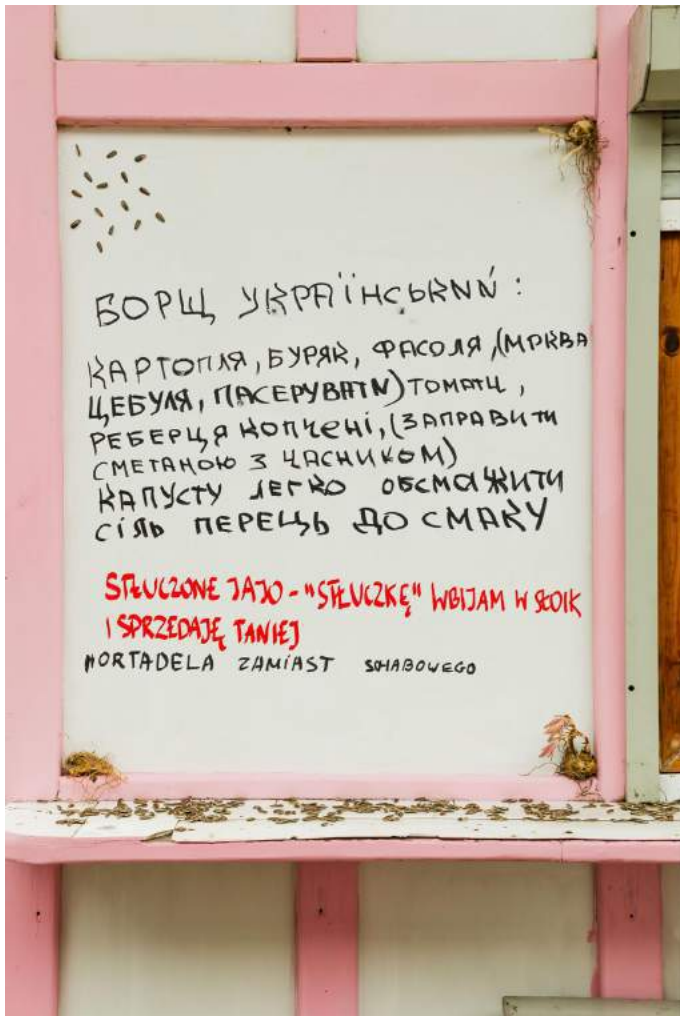 БОРЩ УКРАЇНСЬКИЙ:
КАРТОПЛЯ, БУРЯК, ФАСОЛЯ, (МРКВА
ЦЕБУЛЯ, ПАСЕРУВАТИ) ТОМАТИ,
РЕБЕРЦЯ КОПЧЕНІ, (ЗАПРАВИТИ
СМЕТАНОЮ З ЧАСНИКОМ)
КАПУСТУ ЛЕГКО ОБСМАЖИТИ
СІЛЬ ПЕРЕЦЬ ДО СМАКУ
STŁUCZONE JAJO - "STŁUCZKĘ" WBIJAM W SŁOIK
I SPRZEDAJĘ TANIEJ
MORTADELA ZAMIAST SCHABOWEGO